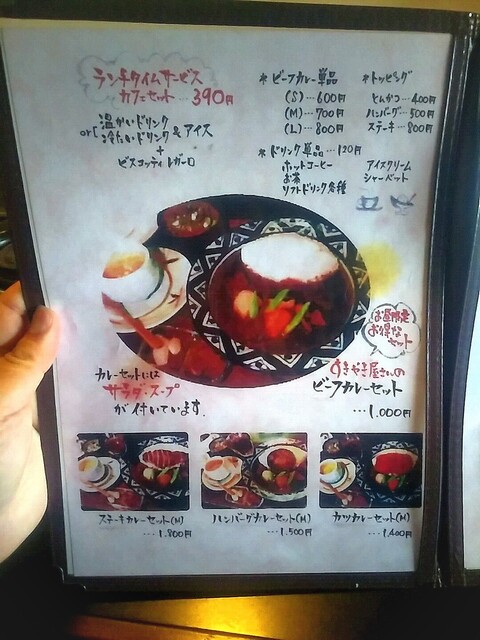 ランチタイムサービス
カフェセット…390円
温かいドリンク
or
冷たいドリンク & アイス
+
ビスコッティレガーロ
* ビーフカレー単品
(S)…600円
(M)…700円
(L)…800円
* ドリンク単品…120円
ホットコーヒー
お茶
ソフトドリンク各種
* トッピング
とんかつ…400円
ハンバーグ…500円
ステーキ…800円
アイスクリーム
シャーベット
お昼限定
お得な
セット
カレーセットには
サラダ・スープ
が付いています。
すきやき屋さんの
ビーフカレーセット
…1,000円
ステーキカレーセット(M)
…1,800円
ハンバーグカレーセット(M)
…1,500円
カツカレーセット(M)
…1,400円